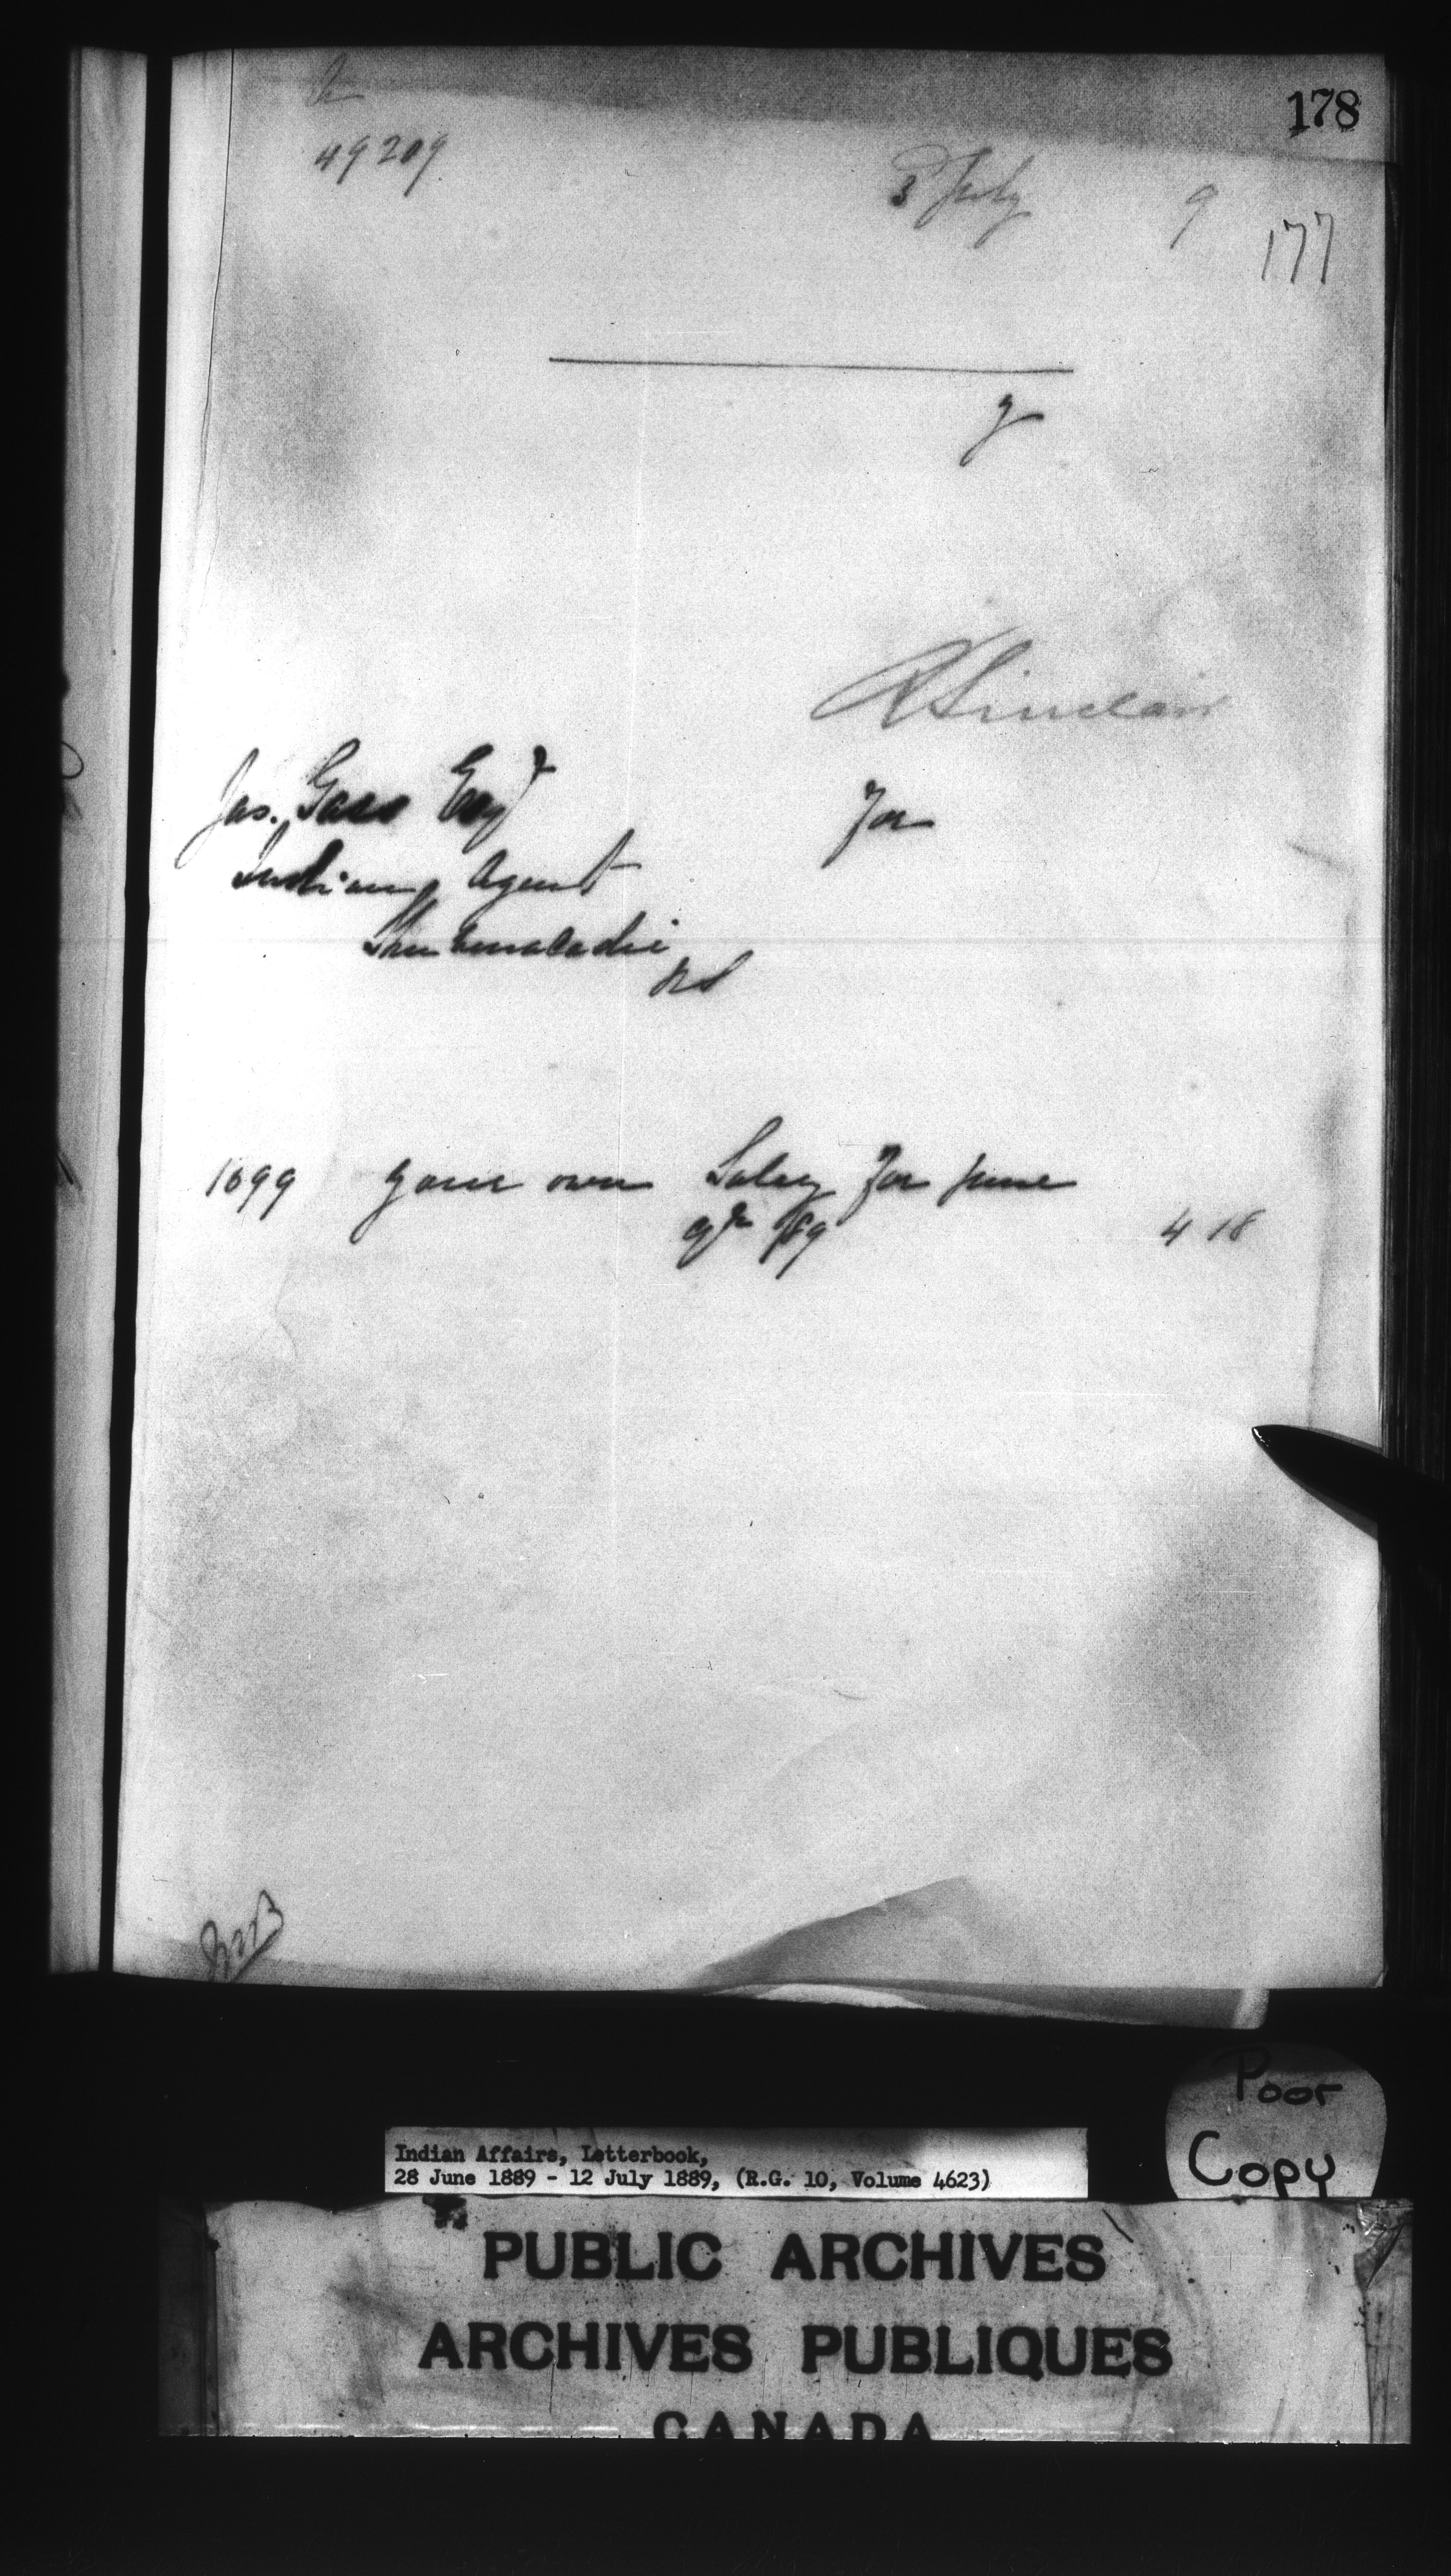 178
49209
3 July 9
177
y
R Sinclair
Jas. Gass Esqr
for
Indian Agent
Shubenacadie
NS
1099 your own Salary for June
qr /89 4 18
Poor
Copy
Indian Affairs, Letterbook,
28 June 1889 - 12 July 1889, (R.G. 10, Volume 4623)
PUBLIC ARCHIVES
ARCHIVES PUBLIQUES
CANADA